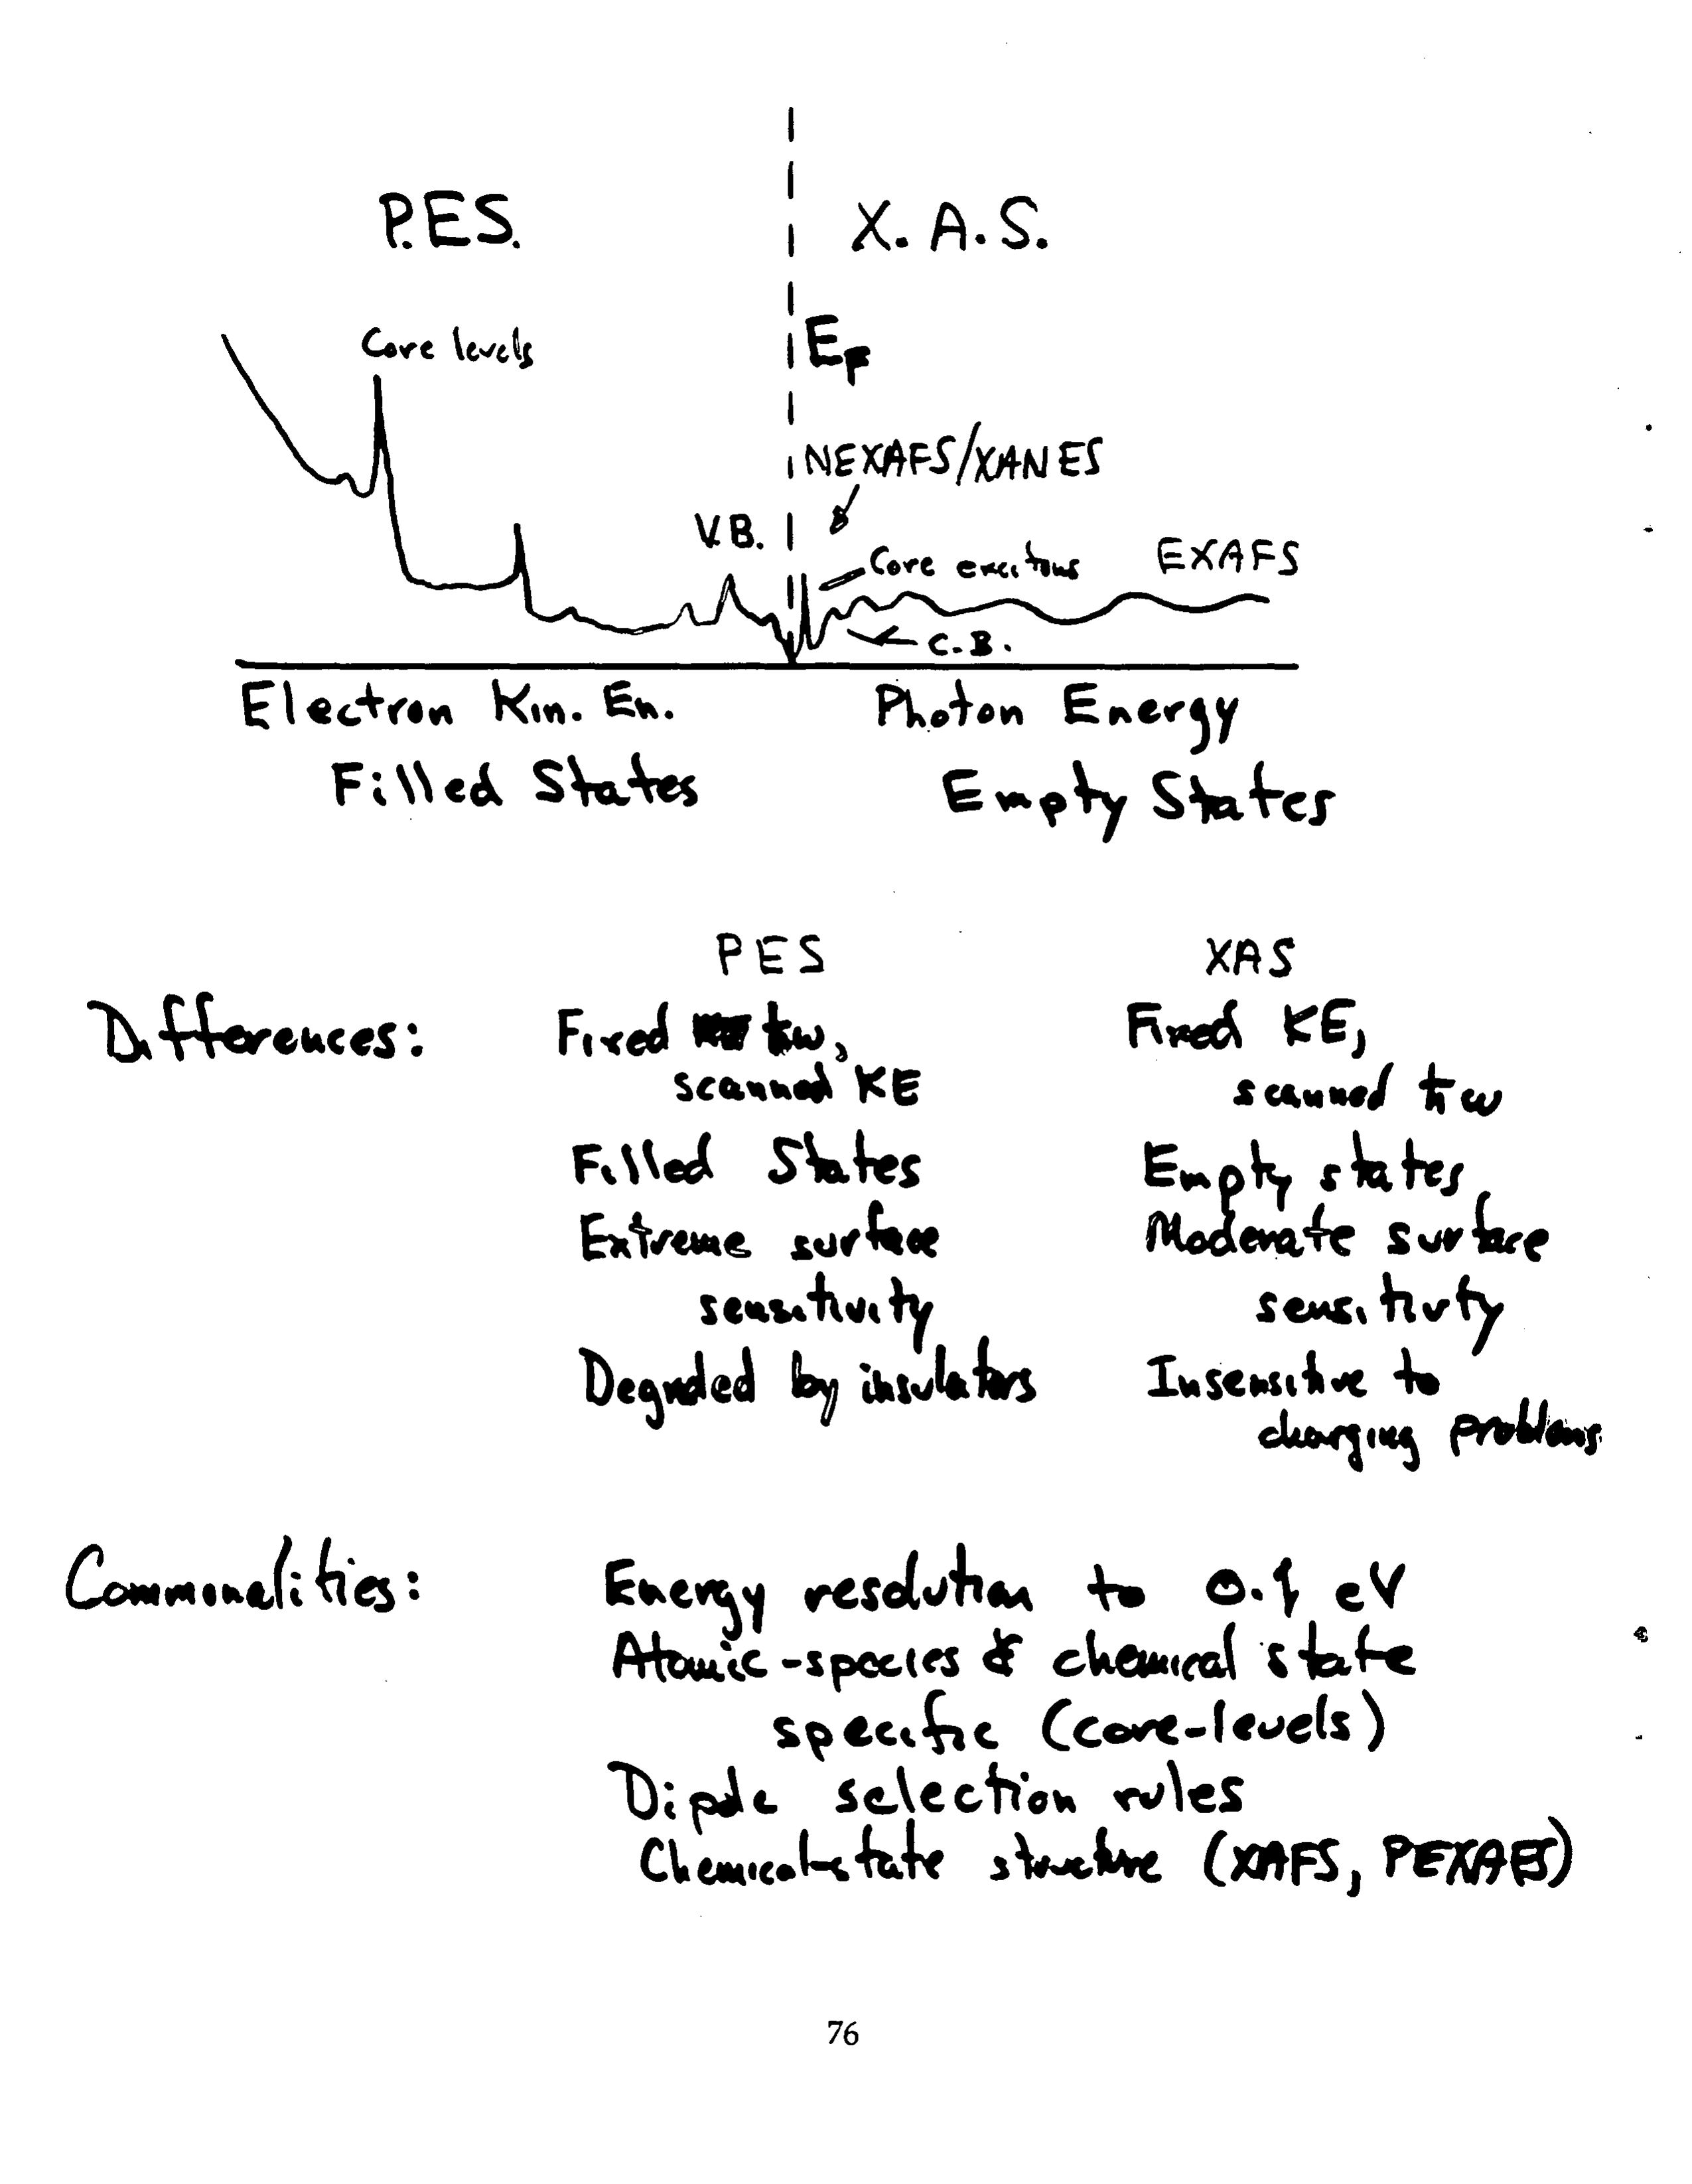 P.E.S. X. A. S.
Core levels
EF
NEXAFS/XANES
V.B.
Core excitons
EXAFS
C.B.
Electron Kin. En. Photon Energy
Filled States Empty States
PES XAS
Differences: Fixed ħω, Fixed KE,
scanned KE scanned ħω
Filled States Empty states
Extreme surface Moderate surface
sensitivity sensitivity
Degraded by insulators Insensitive to
charging problems
Commonalities: Energy resolution to 0.1 eV
Atomic-species & chemical state
specific (core-levels)
Dipole selection rules
Chemical-state structure (XAFS, PEXAFS)
76